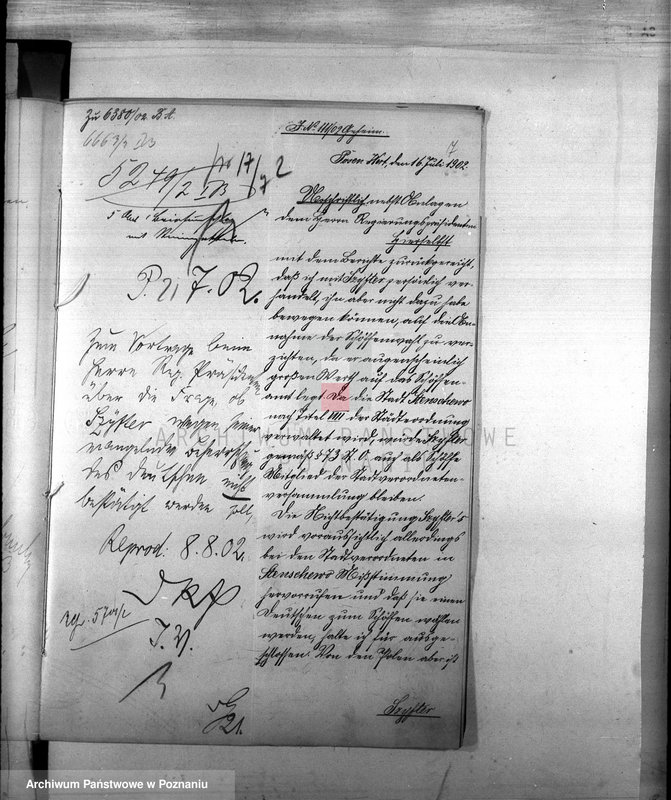 Zu 6380/02. B.A.
666 3/2 I B
5249/2 I B
P. 21/7. 02.
Zum Vortrage beim
Herrn Reg. Präsidenten
über die Frage, ob
Szyfter wegen seiner
mangelnden Beherrschung
des Deutschen nicht
bestätigt werden soll.
Reprod. 8.8.02.
I.V.
J. No. 111/02 Geheim.
7
Posen West, den 16 Juli 1902.
Urschriftlich nebst Anlagen
dem Herrn Regierungspräsidenten
hierselbst
mit dem Berichte zurückgereicht,
daß ich mit Szyfter persönlich ver-
handelt, ihn aber nicht dazu habe
bewegen können, auf die An-
nahme der Schöffenwahl zu ver-
zichten, da er augenscheinlich
großen Werth auf das Schöffen-
amt legt. Da die Stadt Stenschewo
nach Titel VIII der Städteordnung
verwaltet wird, würde Szyfter
gemäß § 73 St. O. auch als Schöffe
Mitglied der Stadtverordneten-
versammlung bleiben.
Die Nichtbestätigung Szyfter's
wird voraussichtlich allerdings
bei den Stadtverordneten in
Stenschewo Mißstimmung
hervorrufen und daß sie einen
Deutschen zum Schöffen wählen
werden, halte ich für ausge-
schlossen. Von den Polen aber ist
Szyfter
ARCHIWUM PAŃSTWOWE
Archiwum Państwowe w Poznaniu